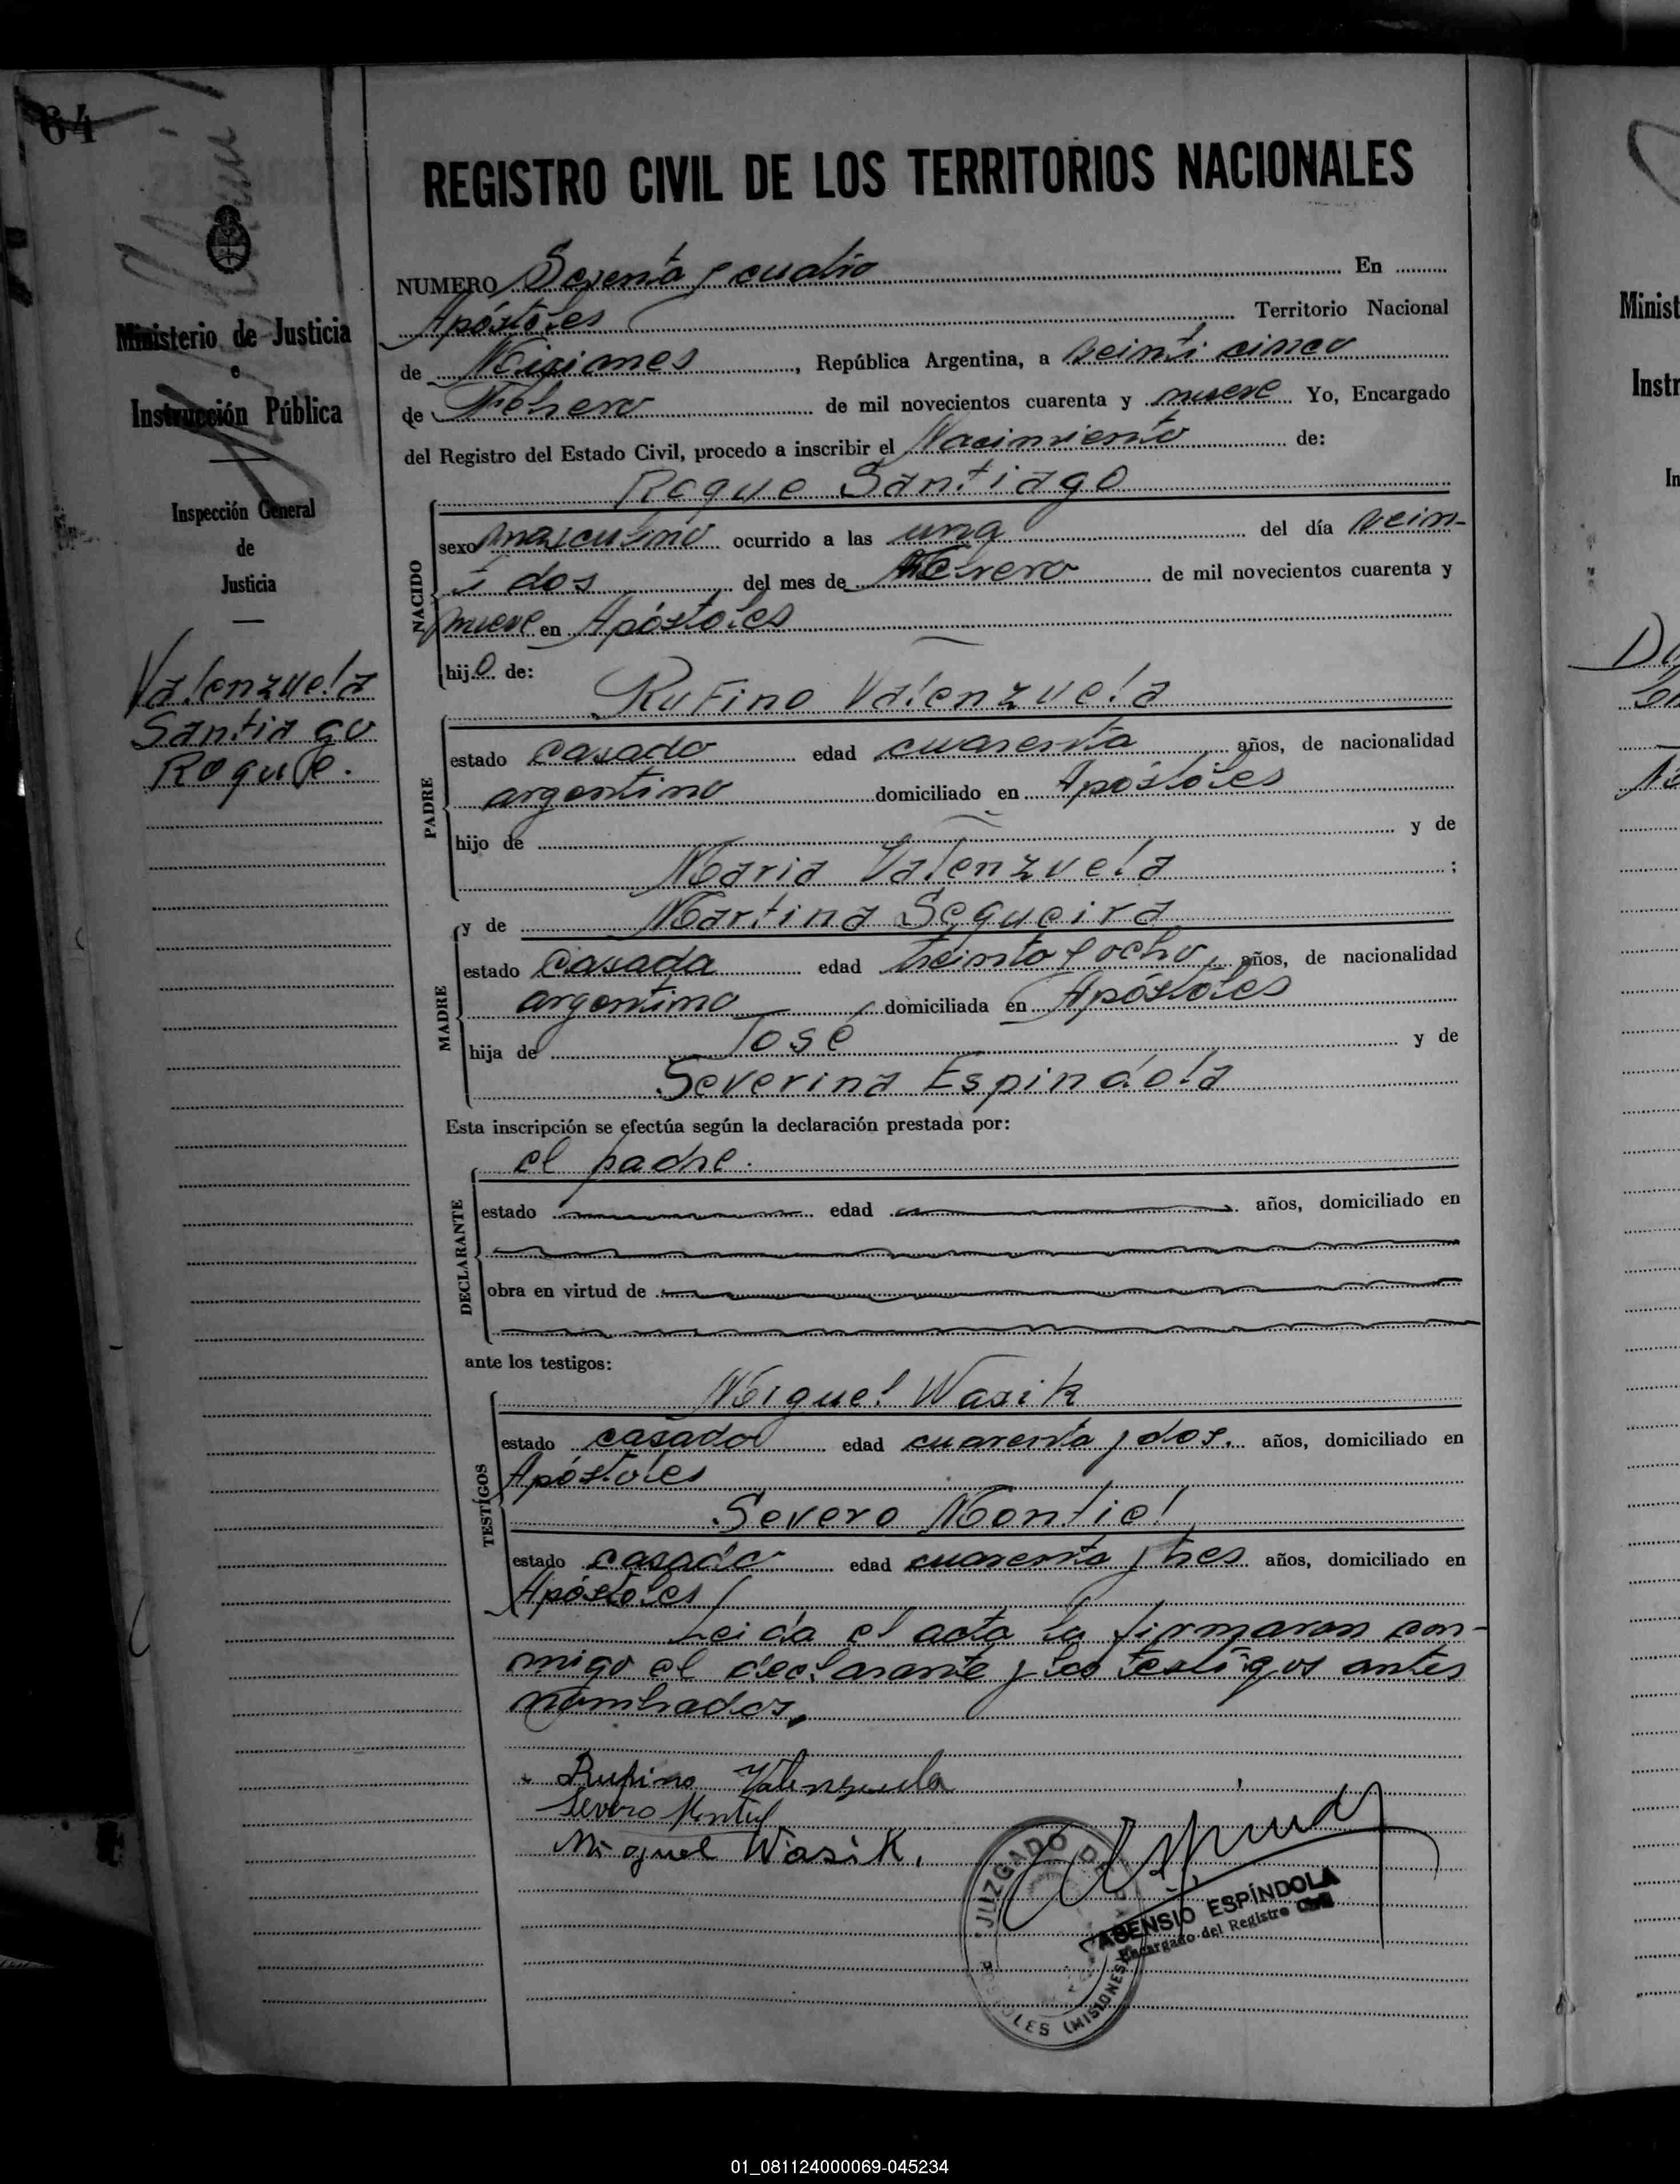 64
REGISTRO CIVIL DE LOS TERRITORIOS NACIONALES
Ministerio de Justicia
e
Instrucción Pública
Inspección General
de
Justicia
Valenzuela
Santiago
Roque.
NUMERO Sesenta y cuatro En
Apóstoles Territorio Nacional
de Misiones, República Argentina, a veinticinco
de Febrero de mil novecientos cuarenta y nueve Yo, Encargado
del Registro del Estado Civil, procedo a inscribir el Nacimiento de:
NACIDO
Roque Santiago
sexo masculino ocurrido a las una del día vein-
tidos del mes de Febrero de mil novecientos cuarenta y
nueve en Apóstoles
hijo de:
Rufino Valenzuela
PADRE
estado casado edad cuarenta años, de nacionalidad
argentino domiciliado en Apóstoles
hijo de y de
Maria Valenzuela ;
y de Martina Sequeira
MADRE
estado casada edad treinta y ocho años, de nacionalidad
argentina domiciliada en Apóstoles
hija de José y de
Severina Espindola
Esta inscripción se efectúa según la declaración prestada por:
el padre.
DECLARANTE
estado edad años, domiciliado en
obra en virtud de
ante los testigos:
Miguel Wasik
TESTIGOS
estado casado edad cuarenta y dos. años, domiciliado en
Apóstoles
Severo Montiel
estado casado edad cuarenta y tres años, domiciliado en
Apóstoles
Leida el acta la firmaron con-
migo el declarante y los testigos antes
nombrados.
Rufino Valenzuela
Severo Montiel
Miguel Wasik.
JUZGADO DE
(MISIONES)
ASENSIO ESPÍNDOLA
Encargado del Registro Civil
Minist
Instr
In
01_081124000069-045234